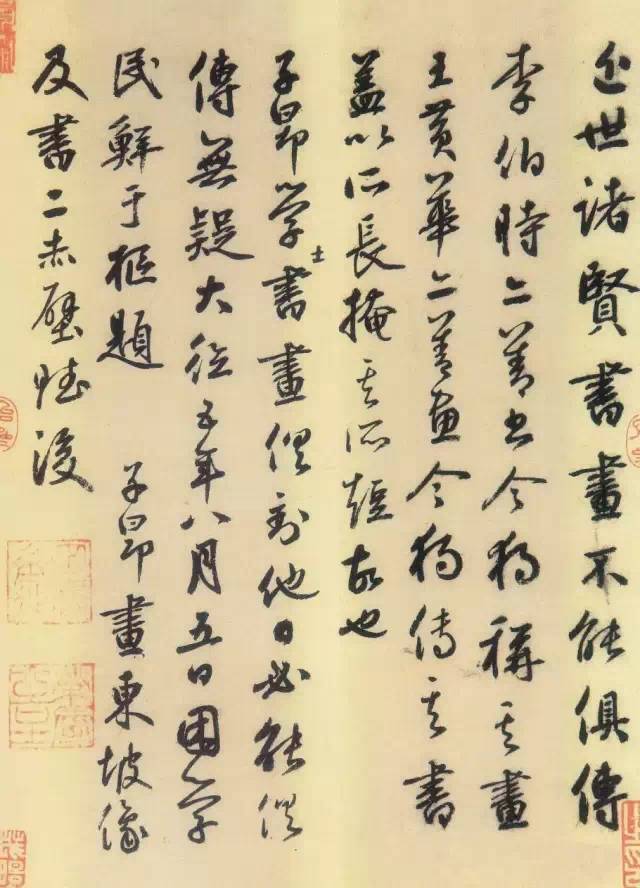 近世諸賢書畫不能俱傳
李伯時亦善書今獨稱其畫
王黃華亦善畫今獨傳其書
蓋以所長掩其所短故也
子昂學士書畫俱到他日必能俱
傳無疑大德五年八月五日困學
民鮮于樞題 子昂畫東坡像
及書二赤壁賦後